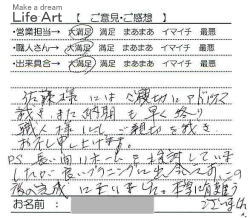 Make a dream
Life Art 【 ご意見・ご感想 】
・営業担当→ 大満足 満足 まあまあ イマイチ 最悪
・職人さん→ 大満足 満足 まあまあ イマイチ 最悪
・出来具合→ 大満足 満足 まあまあ イマイチ 最悪
佐藤様にはご親切にアドバイス
戴き、また納期も早く
職人様にも ご親切を戴き
お礼申し上げます。
PS 長い間リホームを検討していま
したが 良いプランニングに出会えて
完成 いました。
ございました
お名前: